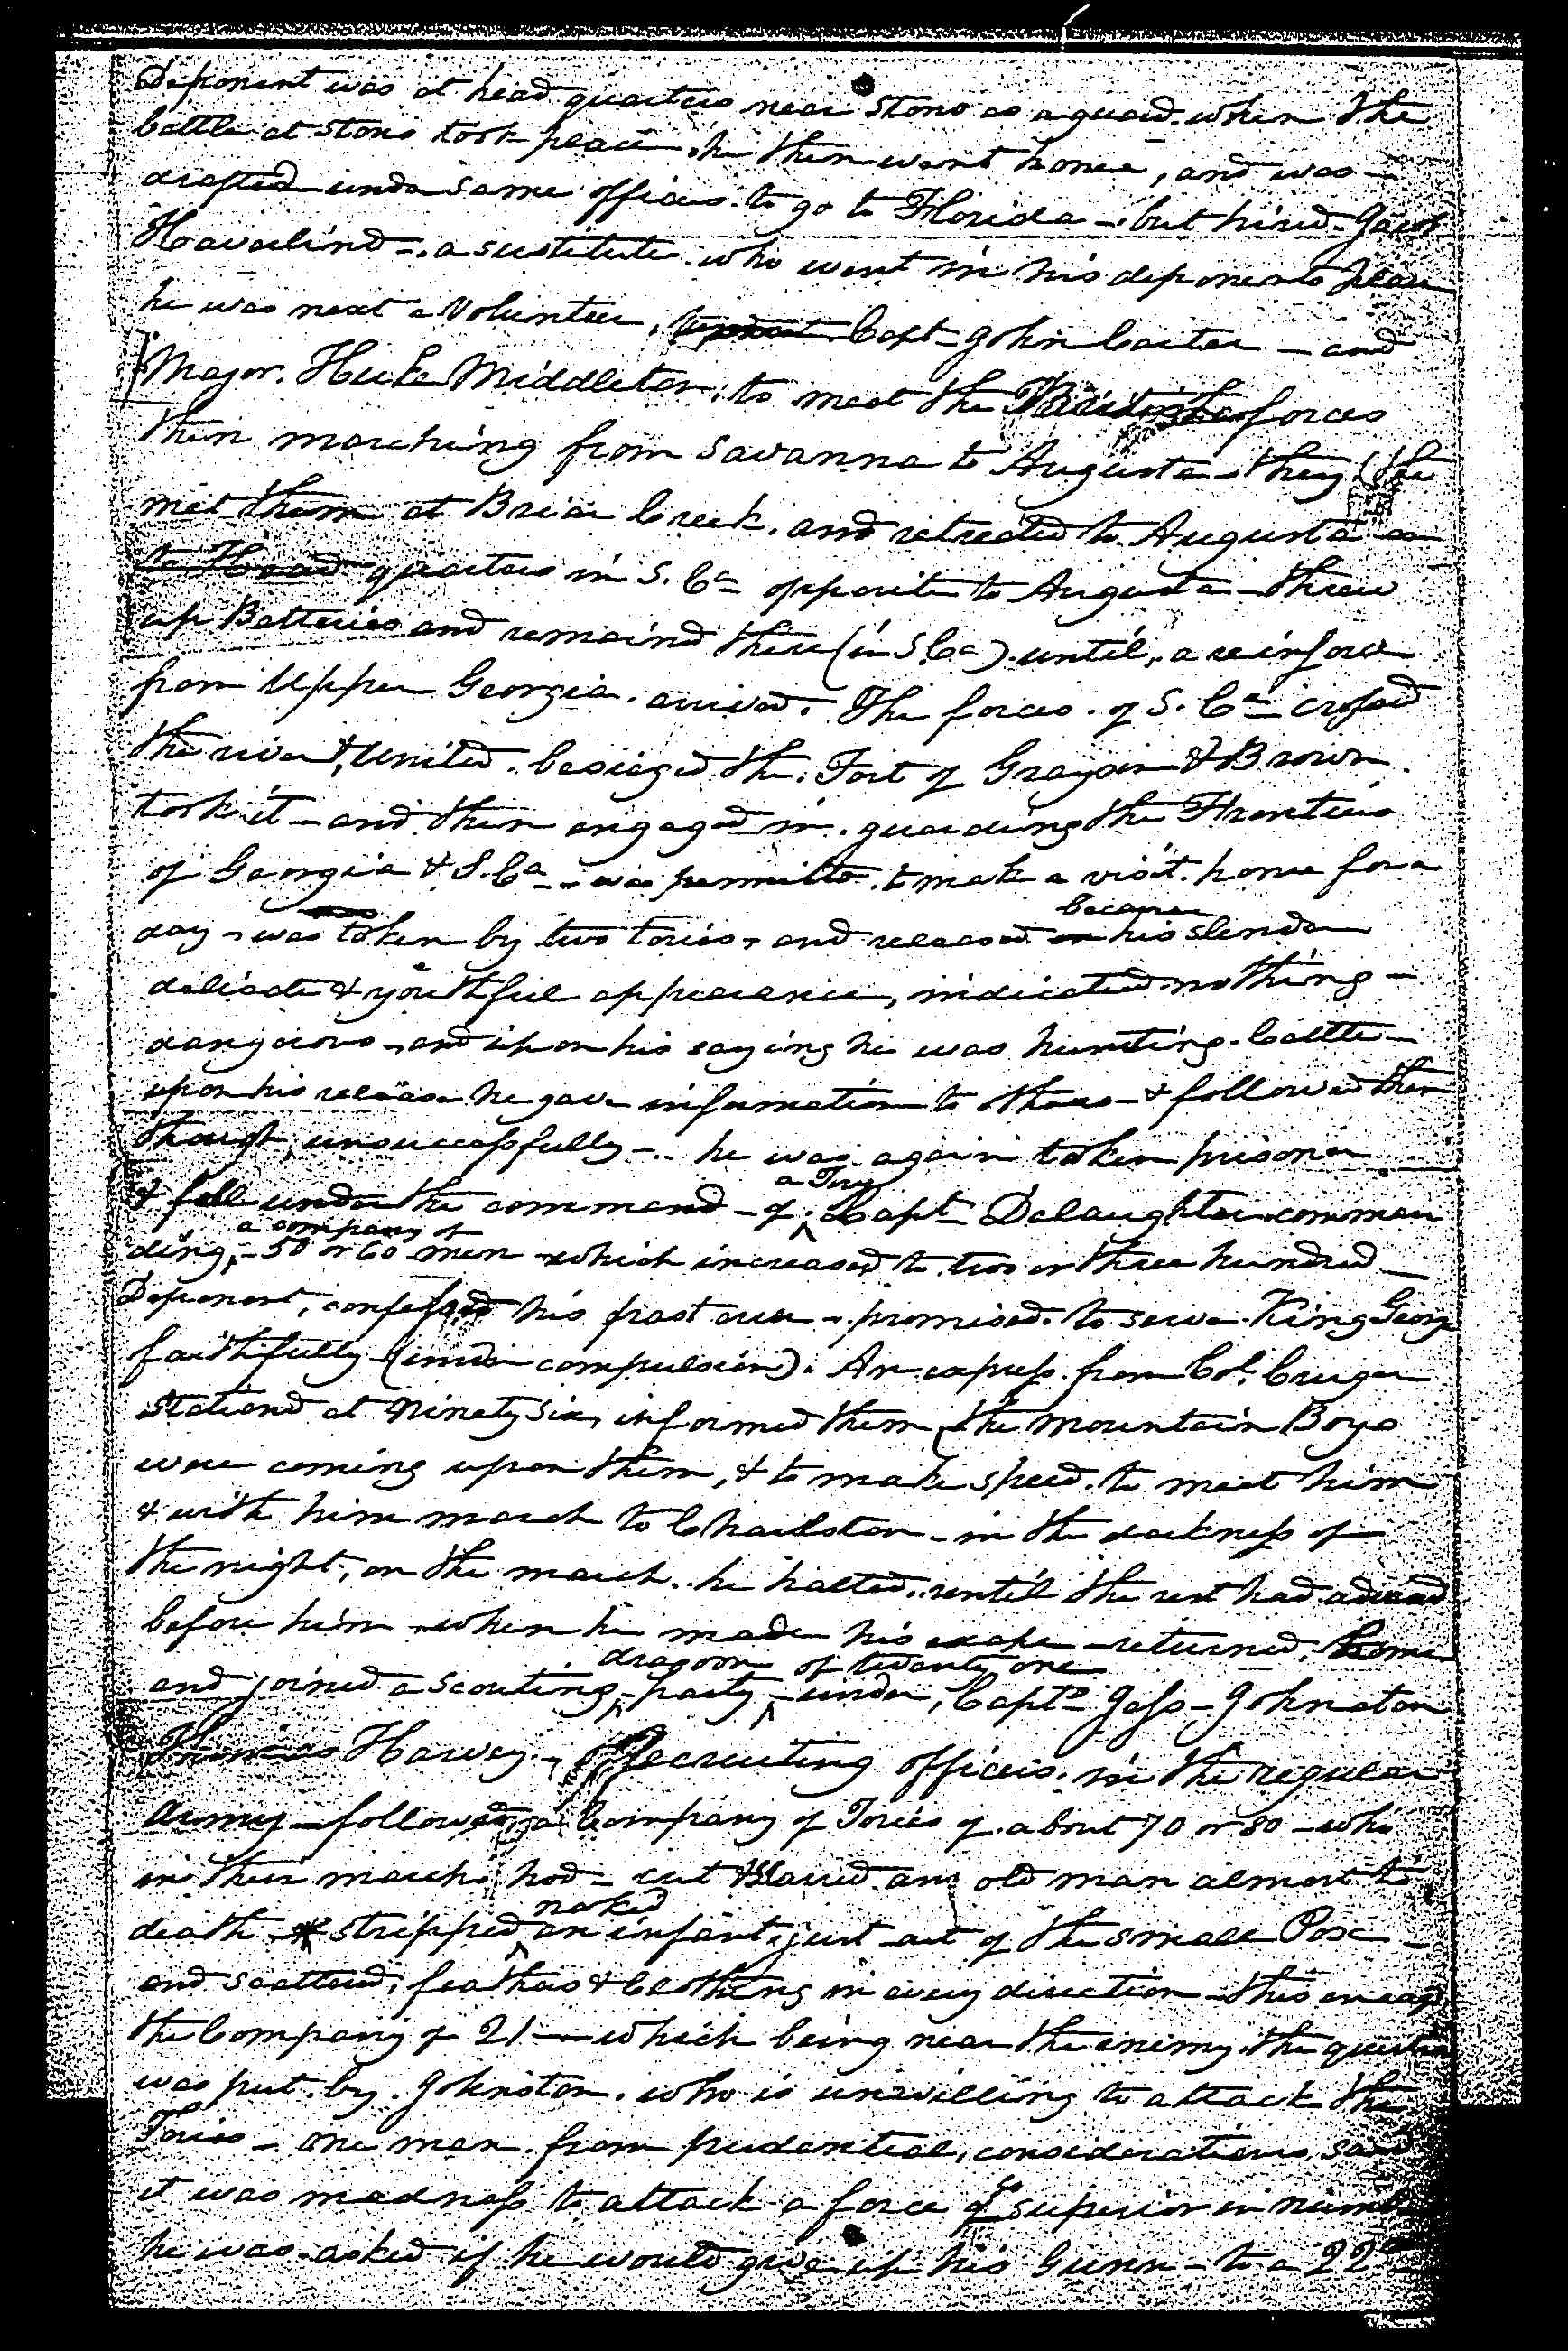 Deponent was at head quarters near Stono as a guard when the
battle at Stono took place, he then went home, and was
drafted under same officers to go to Florida - but hired Jacob
Havalind - a sustitute who went in his deponents place
he was next a Volunteer, Capt John Carter - and
Major Huke Middleton, to meet the British forces
then marching from Savanna to Augusta - they
met them at Briar Creek. and retreated to Augusta
to Head quarters in S. Ca opposite to Augusta - threw
up Batteries and remaind there (in S. Ca) until, a reinforce
from Upper Georgia arrived. The forces of S. Ca crossed
the river & united. besieged the Fort of Grayson & Brown
took it - and then engaged in guarding the Frontiers
of Georgia & S. Ca - was permitted to make a visit home for a
day - was taken by two tories, and released because his slender
delicate & youthful appearance, indicated nothing -
dangerous - and upon his saying he was hunting Cattle -
upon his release he gave information to others - & followed them
though unsuccessfully - he was again taken prisoner
& fell under the command - of a Tory Capt Delaughter comman
ding, a company of 50 or 60 men which increased to two or three hundred
Deponent, confessed his past error - promised to serve King George
faithfully (under compulsion). An express from Col. Cruger
stationd at Ninety Six, informed them the mountain Boys
were coming upon them, & to make speed to meet him
& with him march to Charlston - in the darkness of
the night, on the march he halted until the rest had
before him - when he made his escape - returned home
and joined a scouting dragoon party of twenty one - under, Capts Jess - Johnston
Thomas Harvey - Recruiting officers in the regular
army - followed a Company of Tories of about 70 or 80 - who
in their march had cut & an old man almost to
death & stripped naked an infant just out of the small Pox -
and scattered, feathers & Clothing in every direction - this
the Company of 21 - which being near the enemy the question
was put by Johnston who is unwilling to attack the
Tories - one man from prudential, considerations, said
it was madness to attack a force so superior in
he was asked if he would give up his Gunn - to a 22d